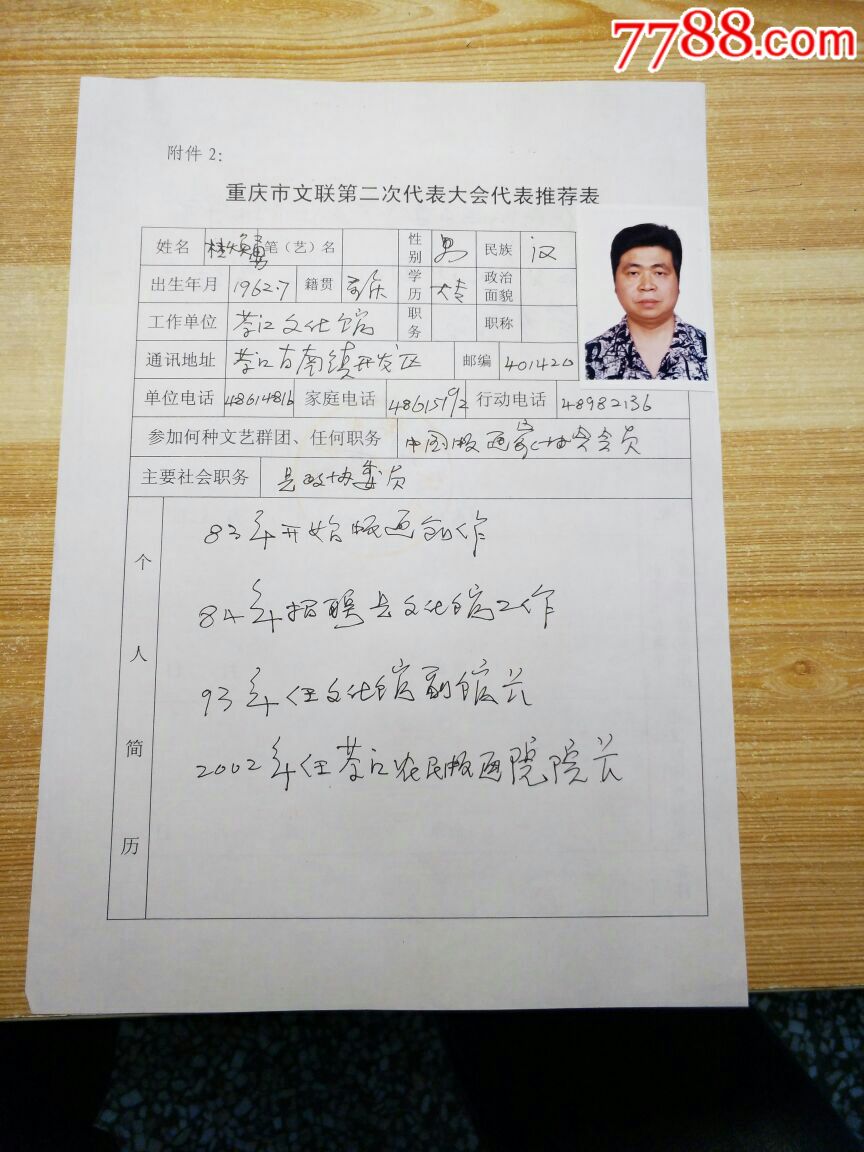 7788.com
附件 2：
重庆市文联第二次代表大会代表推荐表
姓名 笔（艺）名 性别 男 民族 汉
出生年月 1962.7 籍贯 重庆 学历 大专 政治面貌
工作单位 綦江文化馆 职务 职称
通讯地址 綦江古南镇开发区 邮编 401420
单位电话 48614816 家庭电话 48615192 行动电话 48982136
参加何种文艺群团、任何职务 中国版画家协会会员
主要社会职务 县政协委员
个人简历
83年开始版画创作
84年招聘县文化馆工作
93年任文化馆副馆长
2002年任綦江农民版画院院长